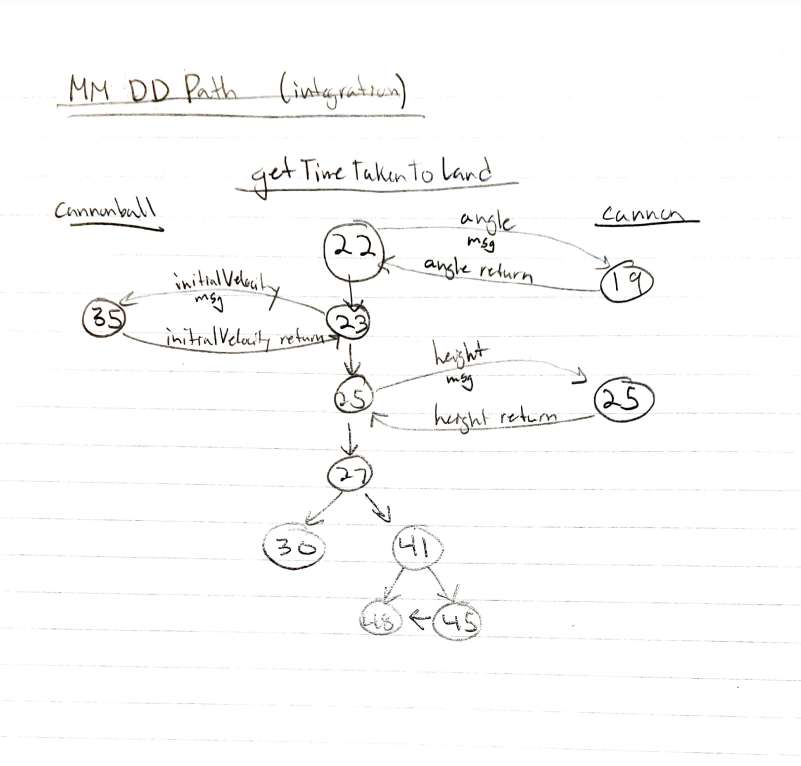 MM DD Path (integration)
getTimeTakenToLand
Cannonball
cannon
22
angle
msg
angle return
19
initialVelocity
msg
35
23
initialVelocity return
height
msg
25
25
height return
27
30
41
48
45